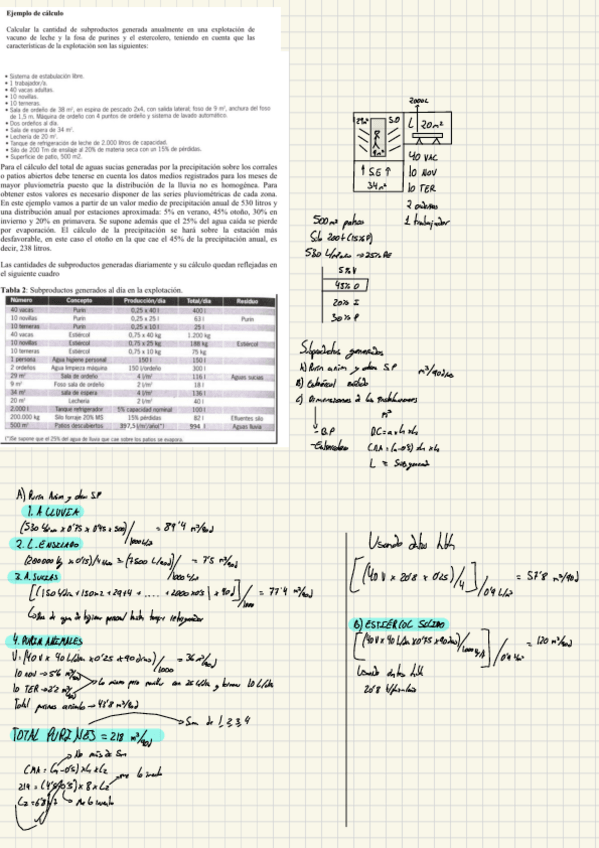 Ejemplo de cálculo
Calcular la cantidad de subproductos generada anualmente en una explotación de
vacuno de leche y la fosa de purines y el estercolero, teniendo en cuenta que las
características de la explotación son las siguientes:
• Sistema de estabulación libre.
• 1 trabajador/a.
• 40 vacas adultas.
• 10 novillas.
• 10 terneras.
• Sala de ordeño de 38 m², en espina de pescado 2x4, con salida lateral; foso de 9 m², anchura del foso
de 1,5 m. Máquina de ordeño con 4 puntos de ordeño y sistema de lavado automático.
• Dos ordeños al día.
• Sala de espera de 34 m².
• Lechería de 20 m².
• Tanque de refrigeración de leche de 2.000 litros de capacidad.
• Silo de 200 Tm de ensilaje al 20% de materia seca con un 15% de pérdidas.
• Superficie de patio, 500 m2.
Para el cálculo del total de aguas sucias generadas por la precipitación sobre los corrales
o patios abiertos debe tenerse en cuenta los datos medios registrados para los meses de
mayor pluviometría puesto que la distribución de la lluvia no es homogénea. Para
obtener estos valores es necesario disponer de las series pluviométricas de cada zona.
En este ejemplo vamos a partir de un valor medio de precipitación anual de 530 litros y
una distribución anual por estaciones aproximada: 5% en verano, 45% otoño, 30% en
invierno y 20% en primavera. Se supone además que el 25% del agua caída se pierde
por evaporación. El cálculo de la precipitación se hará sobre la estación más
desfavorable, en este caso el otoño en la que cae el 45% de la precipitación anual, es
decir, 238 litros.
Las cantidades de subproductos generadas diariamente y su cálculo quedan reflejadas en
el siguiente cuadro
Tabla 2: Subproductos generados al día en la explotación.
Número Concepto Producción/día Total/día Residuo
40 vacas Purín 0,25 x 40 l 400 l
10 novillas Purín 0,25 x 25 l 63 l Purín
10 terneras Purín 0,25 x 10 l 25 l
40 vacas Estiércol 0,75 x 40 kg 1.200 kg
10 novillas Estiércol 0,75 x 25 kg 188 kg Estiércol
10 terneras Estiércol 0,75 x 10 kg 75 kg
1 persona Agua higiene personal 150 l 150 l
2 ordeños Agua limpieza máquina 150 l/ordeño 300 l
29 m² Sala de ordeño 4 l/m² 116 l Aguas sucias
9 m² Foso sala de ordeño 2 l/m² 18 l
34 m² sala de espera 4 l/m² 136 l
20 m² Lechería 2 l/m² 40 l
2.000 l Tanque refrigerador 5% capacidad nominal 100 l
200.000 kg Silo forraje 20% MS 15% pérdidas 82 l Efluentes silo
500 m² Patios descubiertos 397,5 l/m²/año*) 994 l Aguas lluvia
(*)Se supone que el 25% del agua de lluvia que cae sobre los patios se evapora.
2000L
29m² S.O L 20m²
9m²
↑ S.E ↑
34m²
40 VAC
10 NOV
10 TER
2 ordeños
1 trabajador
500m² patios
Silo 200t (15%P)
530 L/m²año → 25% PE
5% V
45% O
20% I
30% P
Subproductos generados
A) Purín anim y demás S.P m³/90días
B) Estiércol sólido
C) Dimensiones de las instalaciones
m³
- B.P
- Estercolero
L = Subp generado
A) Purín Anim y demás S.P
1. A LLUVIA
(530 L/m² x 0'75 x 0'45 x 500)/1000 L/m³ = 89'4 m³/90d
2. L. ENSILADO
(200000 kg x 0'15)/4 = (7500 L/90d)/1000 L/m³ = 7'5 m³/90d
3. A. SUCIAS
[(150 L/día + 150x2 + 29x4 + .... + 2000x0'05) x 90d]/1000 = 77'4 m³/90d
L/días de agua de higiene personal hasta tanque refrigerador
4. PURÍN ANIMALES
V = (40 V x 40 L/día x 0'25 x 90 días)/1000 = 36 m³/90d
10 NOV → 5'6 m³/90d
10 TER → 2'2 m³/90d
Lo mismo pero novillas con 25 L/día y terneras 10 L/día
Total purines animales → 43'8 m³/90d
→ Sum de 1, 2, 3, 4
TOTAL PURINES = 218 m³/90d
→ No más de 5m
→ me lo invento
→ Me lo invento
Usando datos
[(40 V x 20'8 x 0'25)/4] = 57'8 m³/90d
B) ESTIÉRCOL SÓLIDO
[(40V x 40 L/día x 0'75 x 90 días)/1000 kg/t] = 120 m³/90d
Usando datos